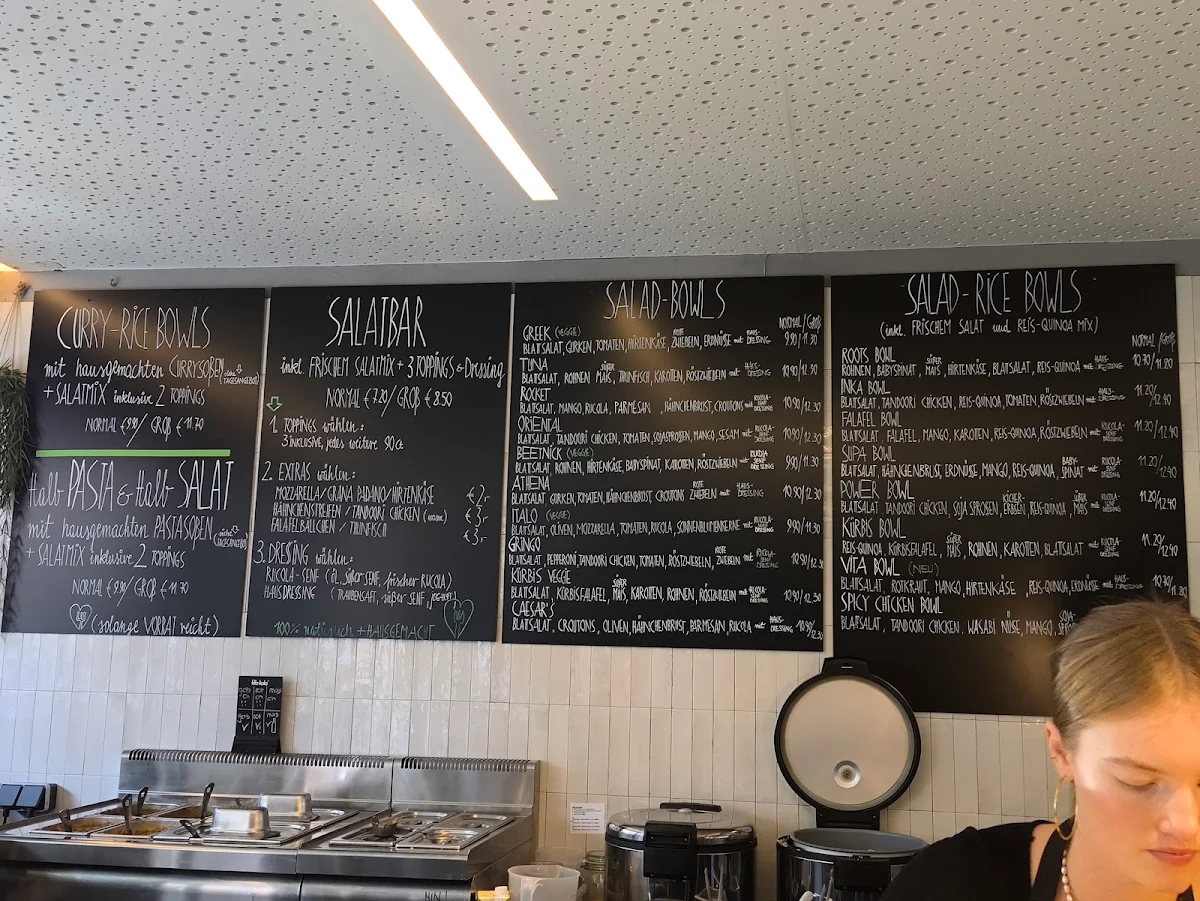 CURRY-RICE BOWLS
mit hausgemachten CURRYSOßEN
(siehe TAGESANGEBOT)
+ SALATMIX inklusive 2 TOPPINGS
NORMAL €9.90/ GROß €11.70
Halb PASTA & Halb SALAT
mit hausgemachten PASTASOßEN
+ SALATMIX inklusive 2 TOPPINGS
NORMAL €9.90/ GROß €11.70
(solange VORRAT reicht)
SALATBAR
inkl. FRISCHEM SALATMIX + 3 TOPPINGS & Dressing
NORMAL €7.20/ GROß €8.50
1. TOPPINGS wählen:
3 inklusive, jedes weitere 90ct
2. EXTRAS wählen:
MOZZARELLA/GRANA PADANO/HIRTENKÄSE €2,-
HÄHNCHENSTREIFEN / TANDOORI CHICKEN (warm) €3,-
FALAFELBÄLLCHEN / THUNFISCH €3,-
3. DRESSING wählen:
RUCOLA-SENF (Öl, süßer SENF, frischer RUCOLA)
HAUSDRESSING (TRAUBENSAFT, süßer SENF, JOGHURT)
100% natürlich + HAUSGEMACHT
SALAD-BOWLS
NORMAL/GROß
GREEK (VEGGIE)
BLATTSALAT, GURKEN, TOMATEN, HIRTENKÄSE, ROTE ZWIEBELN, ERDNÜSSE mit HAUS-DRESSING 9.90/11.30
TUNA
BLATTSALAT, ROHNEN, SÜßER MAIS, THUNFISCH, KAROTTEN, RÖSTZWIEBELN mit HAUS-DRESSING 10.90/12.30
ROCKET
BLATTSALAT, MANGO, RUCOLA, PARMESAN, HÄHNCHENBRUST, CROUTONS mit RUCOLA-SENF DRESSING 10.90/12.30
ORIENTAL
BLATTSALAT, TANDOORI CHICKEN, TOMATEN, SOJASPROSSEN, MANGO, SESAM mit RUCOLA-SENF DRESSING 10.90/12.30
BEETNICK (VEGGIE)
BLATTSALAT, ROHNEN, HIRTENKÄSE, BABYSPINAT, KAROTTEN, RÖSTZWIEBELN mit RUCOLA-SENF DRESSING 9.90/11.30
ATHENA
BLATTSALAT, GURKEN, TOMATEN, HÄHNCHENBRUST, CROUTONS ROTE ZWIEBELN mit HAUS-DRESSING 10.90/12.30
ITALO (VEGGIE)
BLATTSALAT, OLIVEN, MOZZARELLA, TOMATEN, RUCOLA, SONNENBLUMENKERNE mit RUCOLA-SENF DRESSING 9.90/11.30
GRINGO
BLATTSALAT, PEPPERONI, TANDOORI CHICKEN, TOMATEN, RÖSTZWIEBELN, ROTE ZWIEBELN mit RUCOLA-SENF DRESSING 10.90/12.30
KÜRBIS VEGGIE
BLATTSALAT, KÜRBISFALAFEL, SÜßER MAIS, KAROTTEN, ROHNEN, RÖSTZWIEBELN mit RUCOLA-SENF DRESSING 10.90/12.30
CAESAR'S
BLATTSALAT, CROUTONS, OLIVEN, HÄHNCHENBRUST, PARMESAN, RUCOLA mit HAUS-DRESSING 10.90/12.30
SALAD-RICE BOWLS
(inkl. FRISCHEM SALAT und REIS-QUINOA MIX)
NORMAL/GROß
ROOTS BOWL
ROHNEN, BABYSPINAT, SÜßER MAIS, HIRTENKÄSE, BLATTSALAT, REIS-QUINOA mit HAUS-DRESSING 10.70/11.20
INKA BOWL
BLATTSALAT, TANDOORI CHICKEN, REIS-QUINOA, TOMATEN, RÖSTZWIEBELN mit HAUS-DRESSING 11.20/12.40
FALAFEL BOWL
BLATTSALAT, FALAFEL, MANGO, KAROTTEN, REIS-QUINOA, RÖSTZWIEBELN mit RUCOLA-SENF DRESSING 11.20/12.40
SUPA BOWL
BLATTSALAT, HÄHNCHENBRUST, ERDNÜSSE, MANGO, REIS-QUINOA, BABY-SPINAT mit RUCOLA-SENF DRESSING 11.20/12.40
POWER BOWL
BLATTSALAT, TANDOORI CHICKEN, SOJASPROSSEN, KICHER-ERBSEN, REIS-QUINOA, SÜßER MAIS mit RUCOLA-SENF DRESSING 11.20/12.40
KÜRBIS BOWL
REIS-QUINOA, KÜRBISFALAFEL, SÜßER MAIS, ROHNEN, KAROTTEN, BLATTSALAT mit RUCOLA-SENF DRESSING 11.20/12.40
VITA BOWL (NEU)
BLATTSALAT, ROTKRAUT, MANGO, HIRTENKÄSE, REIS-QUINOA, ERDNÜSSE mit HAUS-DRESSING 10.70/11.80
SPICY CHICKEN BOWL
BLATTSALAT, TANDOORI CHICKEN, WASABI NÜSSE, MANGO,